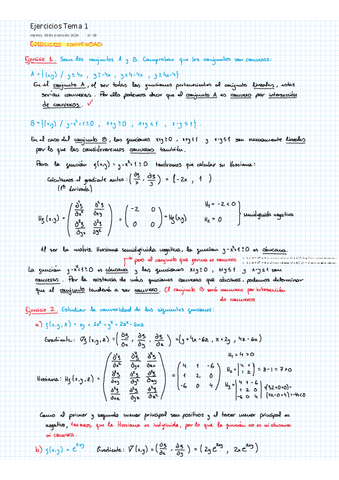 Ejercicios Tema 1
EJERCICIOS: CONVEXIDAD
Ejercicio 1. Sean los conjuntos A y B. Comprobar que los conjuntos son convexos:
A = {(x,y) / y ≤ 4x , y ≥ -4x , y ≤ 4-4x , y ≥ 4x-4}
En el conjunto A, al ser todas las funciones pertenecientes al conjunto lineales, estas
serían convexas. Por ello podemos decir que el conjunto A es convexo por intersección
de convexos.
B = {(x,y) / y-x²+1 ≥ 0 , x+y ≥ 0 , x+y ≤ 1 , x-y ≤ 1}
En el caso del conjunto B, las funciones x+y ≥ 0, x+y ≤ 1 y x-y ≤ 1 son nuevamente lineales
por lo que las consideraremos convexas también.
Para la función g(x,y) = y-x²+1 ≥ 0 tendremos que calcular su Hessiana:
Calculamos el gradiente antes: (∂g/∂x , ∂g/∂y) = (-2x, 1)
(1ª derivada)
Hg(x,y) = = (-2 0 0 0) = Hg(x,y)
H₁ = -2 < 0
H₂ = 0
semidefinida negativa
Al ser la matriz Hessiana semidefinida negativa, la función y-x²+1 ≥ 0 es cóncava.
pero el conjunto que forma es convexo.
La función y-x²+1 ≥ 0 es cóncava y las funciones x+y ≥ 0, x+y ≤ 1 y x-y ≤ 1 son
convexas. Por la existencia de más funciones convexas que cóncavas, podemos determinar
que el conjunto tenderá a ser convexo. El conjunto B será convexo por intersección
de convexos
Ejercicio 2. Estudiar la convexidad de las siguientes funciones:
a) g(x,y,z) = xy + 2x² + y² + 2z² - 6xz
Gradiente: ∇g(x,y,z) = (∂g/∂x , ∂g/∂y , ∂g/∂z) = (y+4x-6z , x+2y , 4z-6x)
Hessiana: Hg(x,y,z) = = (4 1 -6 1 2 0 -6 0 4)
H₁ = 4 > 0
H₂ = |4 1 1 2| = 8-1 = 7 > 0
H₃ = |4 1 -6 1 2 0 -6 0 4|
Como el primer y segundo menor principal son positivos y el tercer menor principal es
negativo, tenemos que la Hessiana es indefinida, por lo que la función no es ni cóncava
ni convexa.
b) g(x,y) = e^2xy Gradiente: ∇(x,y) = (∂g/∂x , ∂g/∂y) = (2y e^2xy , 2x e^2xy)